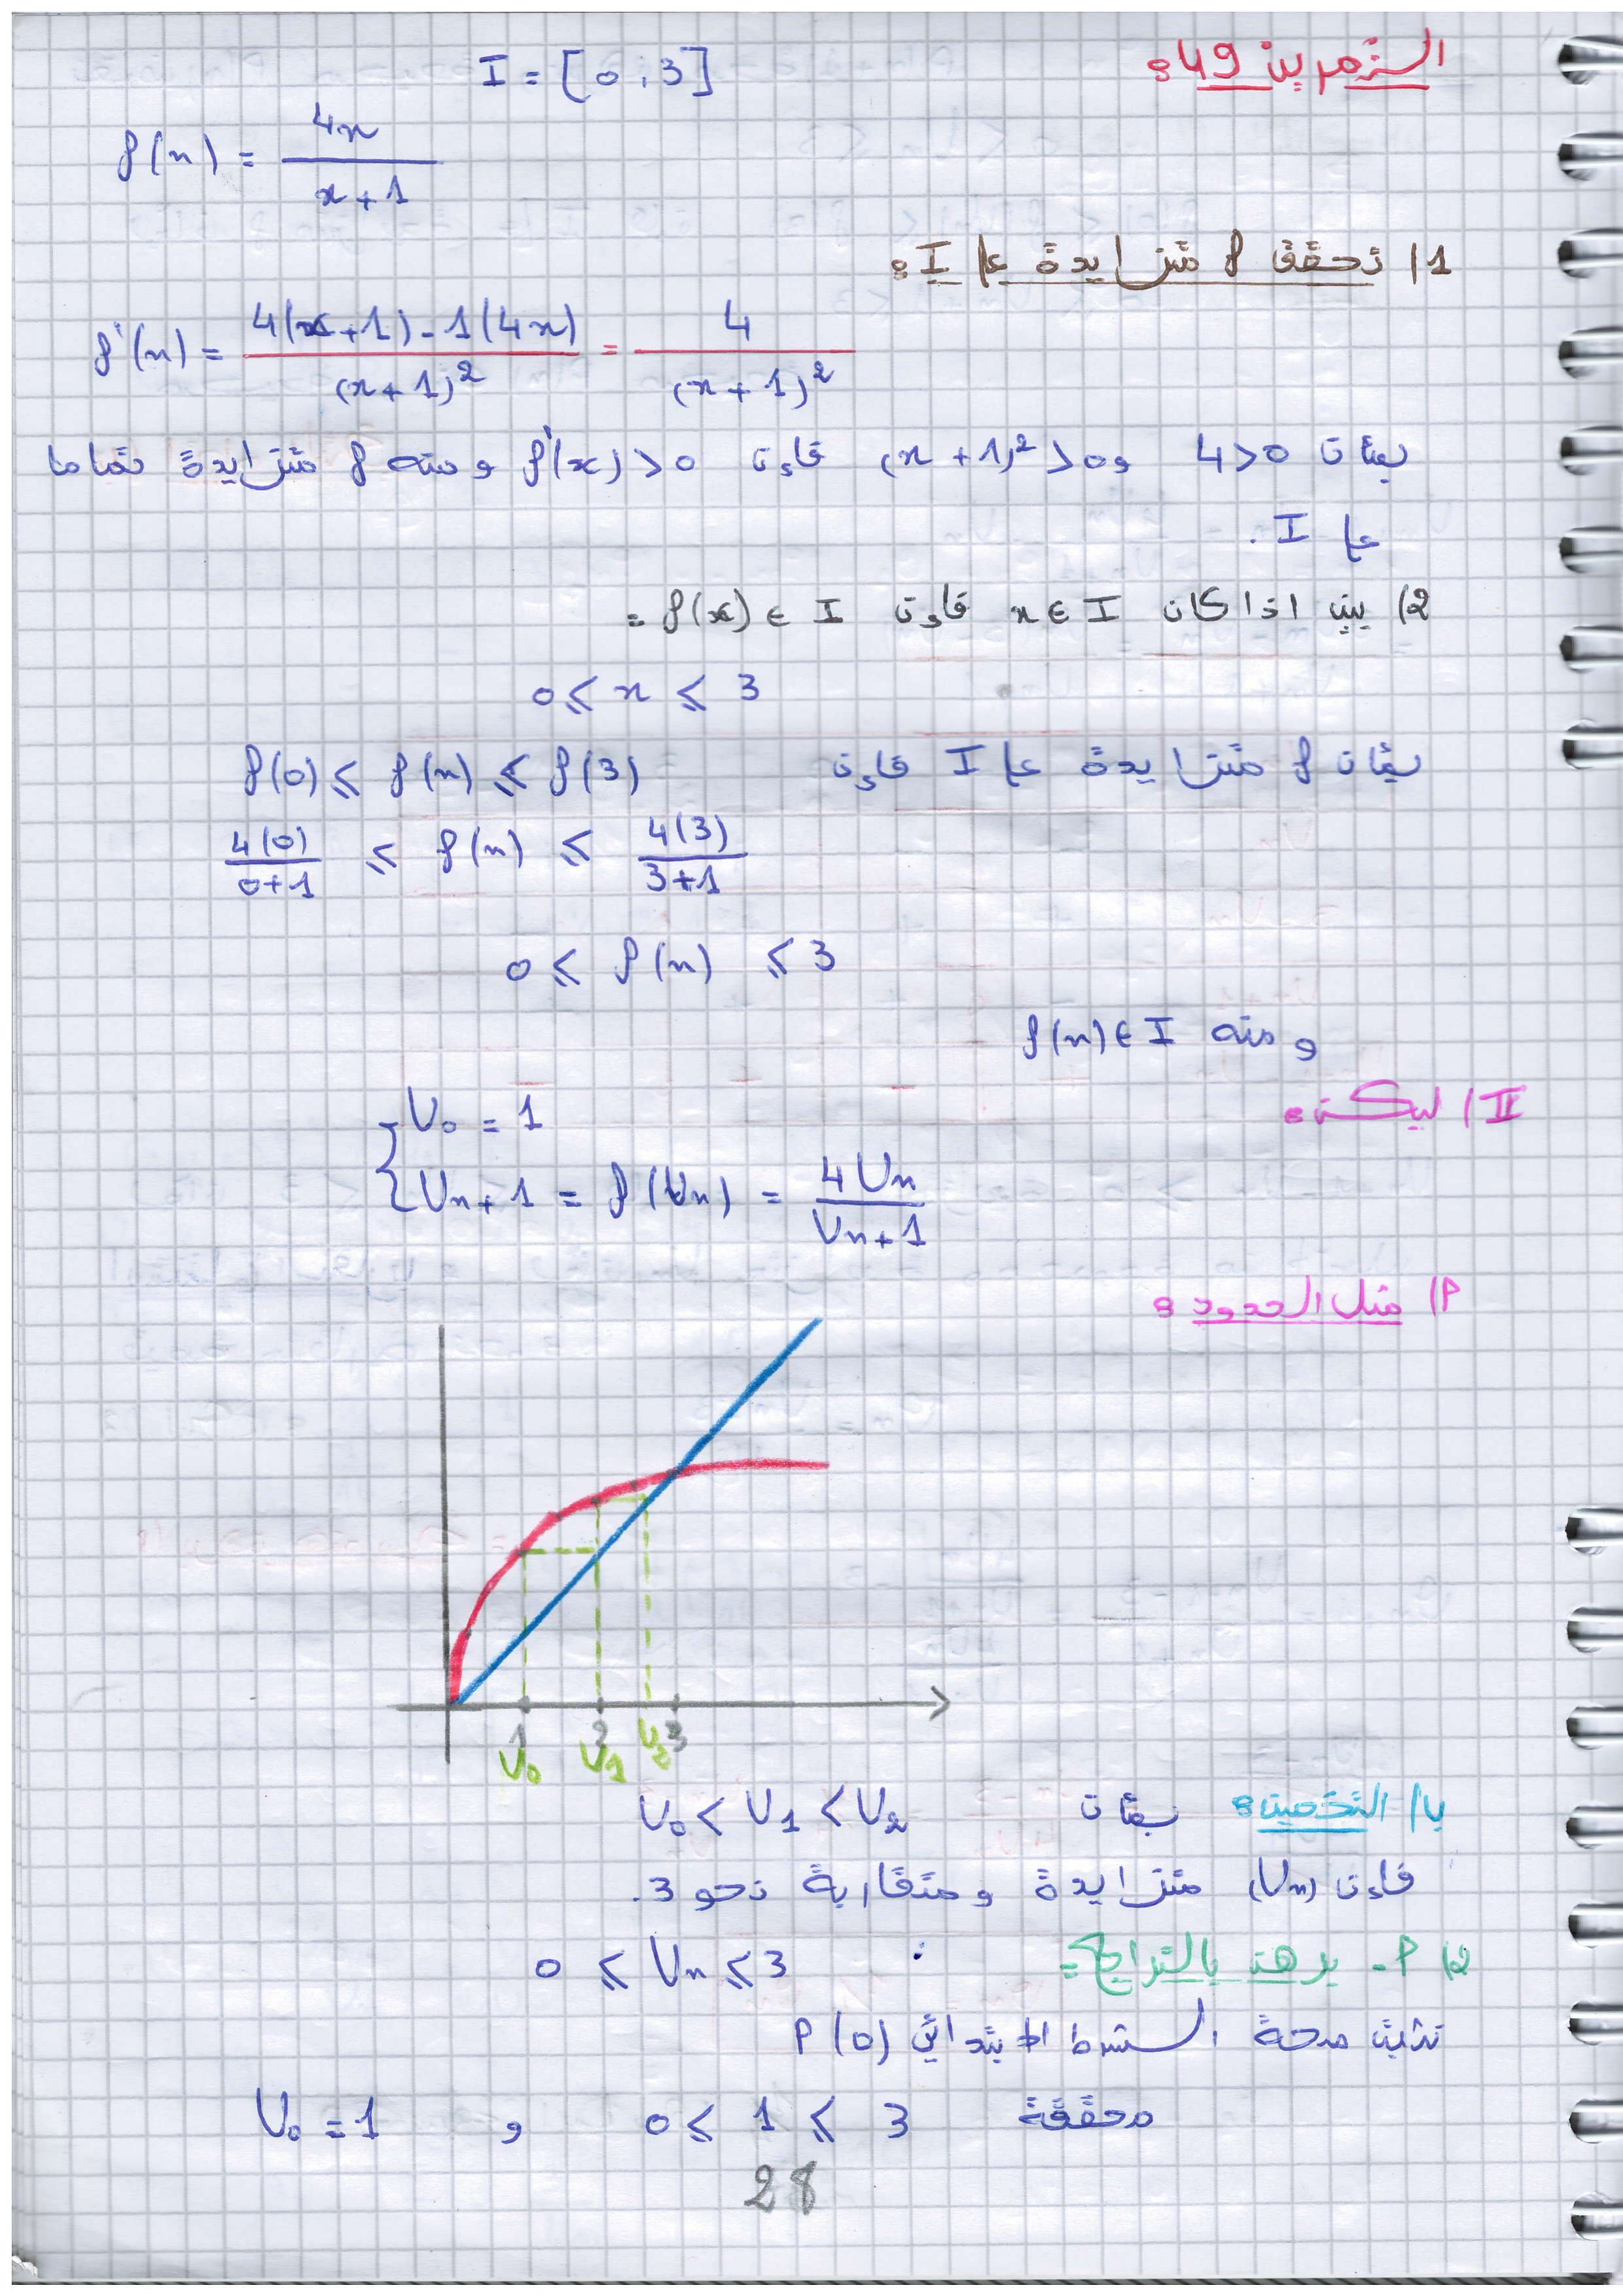 التمرين 49:
I = [0 ; 3]
f(x) = 4x / x+1
1/ تحقق f متزايدة على I:
f'(x) = 4(x+1) - 1(4x) / (x+1)² = 4 / (x+1)²
بمأن 4>0 و (x+1)²>0 فإن f'(x)>0 ومنه f متزايدة تماما
على I.
2/ بين اذا كان x∈I فإن f(x)∈I =
0 ≤ x ≤ 3
بمأن f متزايدة على I فإن f(0) ≤ f(x) ≤ f(3)
4(0) / 0+1 ≤ f(x) ≤ 4(3) / 3+1
0 ≤ f(x) ≤ 3
ومنه f(x)∈I
II/ ليكن:
{ U₀ = 1
Uₙ₊₁ = f(Uₙ) = 4Uₙ / Uₙ+1
P/ مثل الحدود:
1 2 3
U₀ U₁ U₂
ب/ التخمين: بمأن U₀ < U₁ < U₂
فإن (Uₙ) متزايدة ومتقاربة نحو 3.
2/ P - برهن بالتراجع: 0 ≤ Uₙ ≤ 3
نثبت صحة الشرط الابتدائي P(0)
U₀ = 1 و 0 ≤ 1 ≤ 3 محققة
28